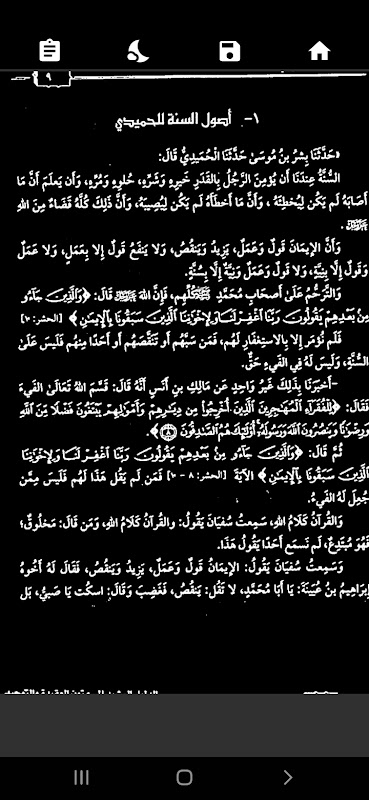 ٩
١- أصول السنة للحميدي
«حَدَّثَنَا بِشْرُ بنُ مُوسَىٰ حَدَّثَنَا الْحُمَيْدِيُّ قَالَ:
السُّنَّةُ عِنْدَنَا أَن يُؤمِنَ الرَّجُلُ بِالقَدَرِ خَيرِهِ وَشَرِّهِ، حُلوِهِ وَمُرِّهِ، وَأَن يَعلَمَ أَنَّ مَا
أَصَابَهُ لَم يَكُن لِيُخطِئَهُ، وَأَنَّ مَا أَخطَأَهُ لَم يَكُن لِيُصِيبَهُ، وَأَنَّ ذَلِكَ كُلَّهُ قَضَاءٌ مِنَ اللهِ
.
وَأَنَّ الإِيمَانَ قَولٌ وَعَمَلٌ، يَزِيدُ وَيَنقُصُ، وَلا يَنفَعُ قَولٌ إِلا بِعَمَلٍ، وَلا عَمَلٌ
وَقَولٌ إِلا بِنِيَّةٍ، وَلا قَولٌ وَعَمَلٌ وَنِيَّةٌ إِلا بِسُنَّةٍ.
وَالتَّرَحُّمُ عَلَىٰ أَصحَابِ مُحَمَّدٍ ﷺ كُلِّهِم، فَإِنَّ اللهَ قَالَ: ﴿وَالَّذِينَ جَاءُو
مِنْ بَعْدِهِمْ يَقُولُونَ رَبَّنَا اغْفِرْ لَنَا وَلِإِخْوَانِنَا الَّذِينَ سَبَقُونَا بِالْإِيمَانِ﴾ [الحشر: ١٠]
فَلَم نُؤمَر إِلا بِالاستِغفَارِ لَهُم، فَمَن سَبَّهُم أَو تَنَقَّصَهُم أَو أَحَدًا مِنهُم فَلَيسَ عَلَىٰ
السُّنَّةِ، وَلَيسَ لَهُ فِي الفَيءِ حَقٌّ.
-أَخبَرَنَا بِذَلِكَ غَيرُ وَاحِدٍ عَن مَالِكِ بنِ أَنَسٍ أَنَّهُ قَالَ: قَسَّمَ اللهُ تَعَالَىٰ الفَيءَ
فَقَالَ: ﴿لِلْفُقَرَاءِ الْمُهَاجِرِينَ الَّذِينَ أُخْرِجُوا مِنْ دِيَارِهِمْ وَأَمْوَالِهِمْ يَبْتَغُونَ فَضْلًا مِنَ اللَّهِ
وَرِضْوَانًا وَيَنْصُرُونَ اللَّهَ وَرَسُولَهُ أُولَٰئِكَ هُمُ الصَّادِقُونَ ٨﴾.
ثُمَّ قَالَ: ﴿وَالَّذِينَ جَاءُو مِنْ بَعْدِهِمْ يَقُولُونَ رَبَّنَا اغْفِرْ لَنَا وَلِإِخْوَانِنَا
الَّذِينَ سَبَقُونَا بِالْإِيمَانِ﴾ الآيَةَ [الحشر: ٨ - ١٠] فَمَن لَم يَقُل هَذَا لَهُم فَلَيسَ مِمَّن
جُعِلَ لَهُ الفَيءُ.
وَالقُرآنُ كَلامُ اللهِ، سَمِعتُ سُفيَانَ يَقُولُ: وَالقُرآنُ كَلامُ اللهِ، وَمَن قَالَ: مَخلُوقٌ؛
فَهُوَ مُبتَدِعٌ، لَم نَسمَع أَحَدًا يَقُولُ هَذَا.
وَسَمِعتُ سُفيَانَ يَقُولُ: الإِيمَانُ قَولٌ وَعَمَلٌ، يَزِيدُ وَيَنقُصُ، فَقَالَ لَهُ أَخُوهُ
إِبرَاهِيمُ بنُ عُيَينَةَ: يَا أَبَا مُحَمَّدٍ، لا تَقُل: يَنقُصُ، فَغَضِبَ وَقَالَ: اسكُت يَا صَبِيُّ، بَل